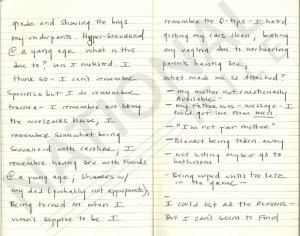 grade and showing the boys
my underpants. Hyper-sexualized
@ a young age. what is this
due to? was I molested. I
think so - I can't remember
specifics but I do remember
trauma - I remember not liking
the house, I
remember somewhat being
sexualized with Caroline, I
remember having sex with friends
@ a young age, showers w/
my dad (probably not appropriate),
Being turned on when I
wasn't suppose to be. I
remember the Q-tips - I hated
getting my ears clean,
my due to overhearing
parents having sex,
what made me so attached?
- my mother not emotionally
available -
- my father was - message - I
could get love from men
- "I'm not your mother"
- Blanket being taken away
- not letting myself go to
bathroom
- Being wiped until too late
in the game -
-
I could list all the reasons -
But I can't seem to find